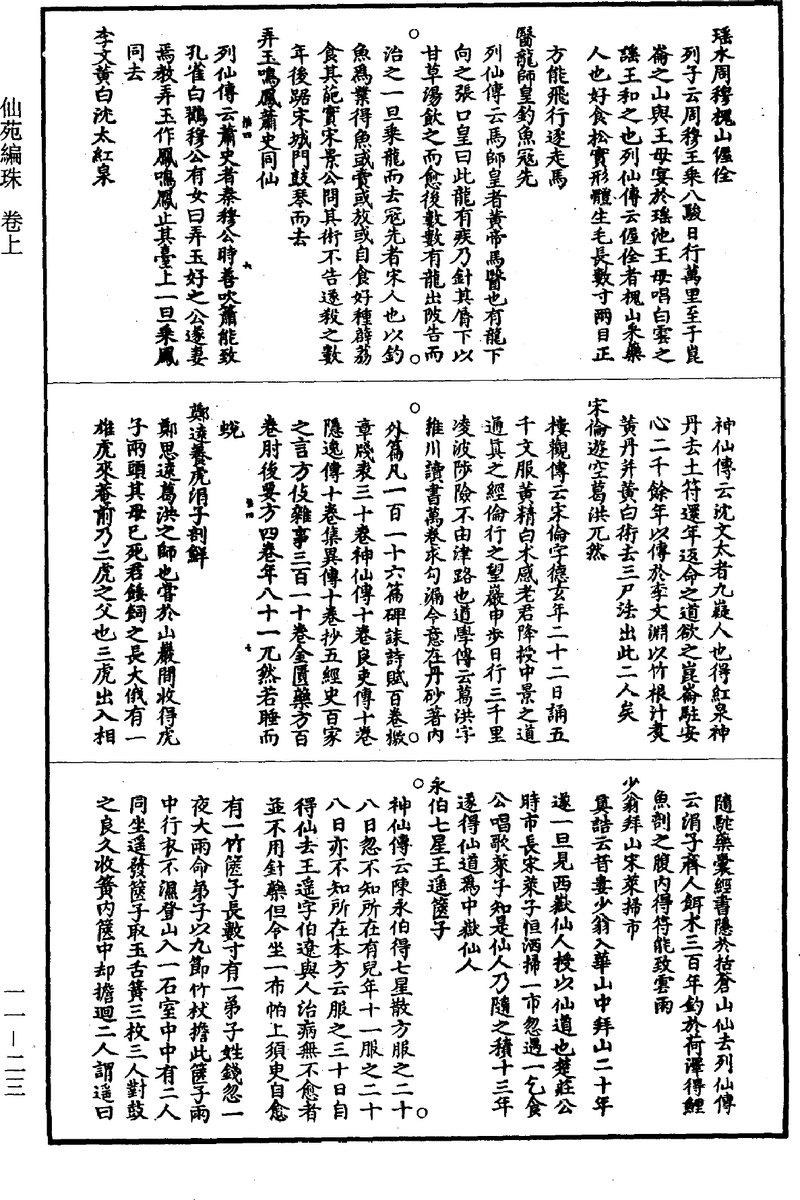 瑶水周穆槐山偓佺
列子云周穆王乘八駿日行萬里至于崑
崙之山與王母宴於瑶池王母唱白雲之
謡王和之也列仙傳云偓佺者槐山采藥
人也好食松實形體生毛長數寸兩目正
方能飛行逐走馬
醫龍師皇釣魚寇先
列仙傳云馬師皇者黄帝馬醫也有龍下
向之張口皇曰此龍有疾乃針其脣下以
甘草湯飲之而愈後數數有龍出陂告而
治之一旦乘龍而去寇先者宋人也以釣
魚爲業得魚或賣或放或自食好種薜荔
食其葩實宋景公問其術不告遂殺之數
年後踞宋城門鼓琴而去
弄玉鳴鳳蕭史同仙
列仙傳云蕭史者秦穆公時善吹簫能致
孔雀白鸛穆公有女曰弄玉好之公遂妻
焉教弄玉作鳳鳴鳳止其臺上一旦乘鳳
同去
李文黄白沈太紅泉
神仙傳云沈文太者九嶷人也得紅泉神
丹去土符還年返命之道欲之崑崙駐安
心二千餘年以傳於李文淵以竹根汁煑
黄丹并黄白術去三尸法出此二人矣
宋倫遊空葛洪兀然
樓觀傳云宋倫字德玄年二十二日誦五
千文服黄精白术感老君降授中景之道
通真之經倫行之望巖申步日行三千里
凌波陟險不由津路也道學傳云葛洪字
稚川讀書萬卷求勾漏令意在丹砂著内
外篇凡一百一十六篇碑誄詩賦百卷檄
章牋表三十卷神仙傳十卷良吏傳十卷
隱逸傳十卷集異傳十卷抄五經史百家
之言方伎雜事三百一十卷金匱藥方百
卷肘後要方四卷年八十一兀然若睡而
蜕
鄭遠養虎涓子剖鮮
鄭思遠葛洪之師也嘗於山巖間收得虎
子兩頭其母已死君餧飼之長大俄有一
雄虎來菴前乃二虎之父也三虎出入相
隨駝藥囊經書隱於括蒼山仙去列仙傳
云涓子齊人餌术三百年釣於荷澤得鯉
魚剖之腹内得符能致雲雨
少翁拜山宋萊掃市
真誥云昔婁少翁入華山中拜山二十年
遂一旦見西嶽仙人授以仙道也楚莊公
時市長宋萊子恒洒掃一市忽遇一乞食
公唱歌萊子知是仙人乃隨之積十三年
遂得仙道爲中嶽仙人
永伯七星王遥篋子
神仙傳云陳永伯得七星散方服之二十
八日忽不知所在有兒年十一服之二十
八日亦不知所在本方云服之三十日自
得仙去王遥字伯遼與人治病無不愈者
並不用針藥但令坐一布帕上須臾自愈
有一竹篋子長數寸有一弟子姓錢忽一
夜大雨命弟子以九節竹杖擔此篋子雨
中行衣不濕登山入一石室中中有二人
同坐遥發篋子取玉舌簧三枚三人對鼓
之良久收簧内篋中却擔迴二人謂遥曰
仙苑編珠 卷上
一一－二三